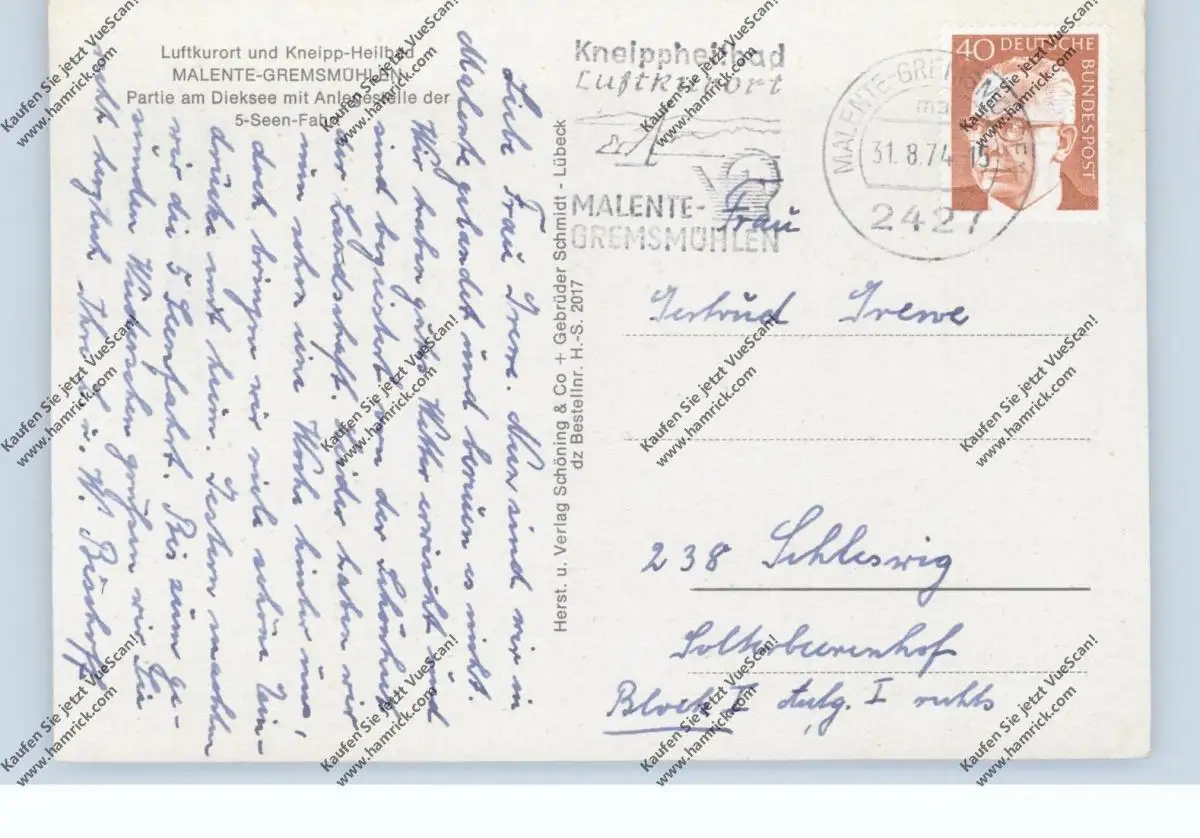 Luftkurort und Kneipp-Heilbad
MALENTE-GREMSMÜHLEN
Partie am Dieksee mit Anlegestelle der
5-Seen-Fahrt
Liebe Frau Grewe. Nun sind wir in
Malente gelandet und bereuen es nicht.
Wir haben gutes Wetter erwischt und
sind begeistert von der Schönheit
der Landschaft. Leider haben wir
nun schon eine Woche hinter uns,
doch bringen wir viele schöne Ein-
drücke mit heim. Gestern machten
wir die 5 Seenfahrt. Bis zum ge-
sunden Wiedersehen grüßen wir Sie
recht herzlich Ihre u. W. Bischoff
Herst. u. Verlag Schöning & Co + Gebrüder Schmidt - Lübeck
dz BestellNr. H.-S. 2017
Kneippheilbad
Luftkurort
MALENTE-
GREMSMÜHLEN
MALENTE-GREMSMÜHLEN
31.8.74-15
2427
40 DEUTSCHE
BUNDESPOST
Frau
Gertrud Grewe
238 Schleswig
Block I I rechts
Kaufen Sie jetzt VueScan!
www.hamrick.com